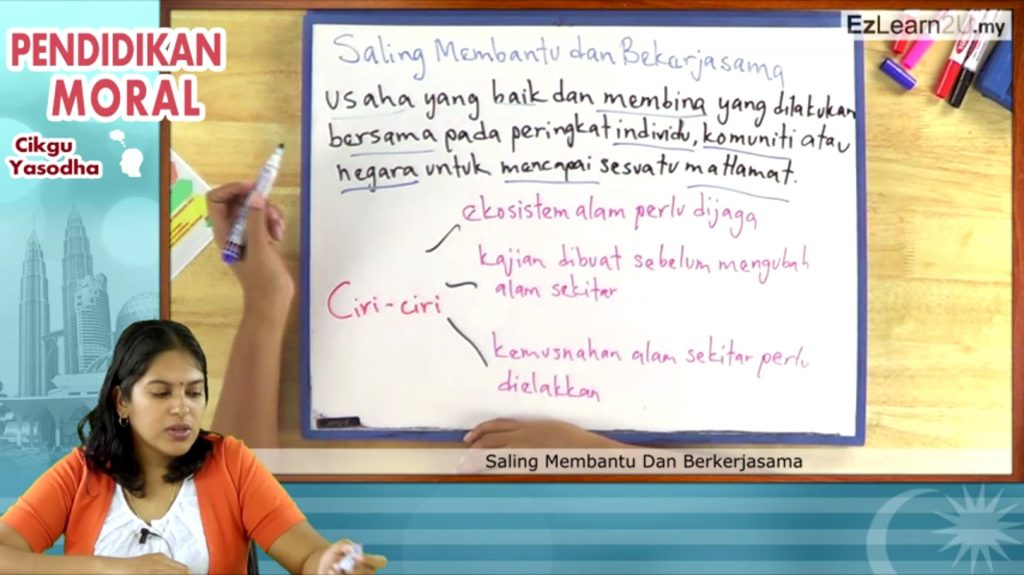 PENDIDIKAN
MORAL
Cikgu
Yasodha
EzLearn2U.my
Saling Membantu dan Bekerjasama
usaha yang baik dan membina yang dilakukan
bersama pada peringkat individu, komuniti atau
negara untuk mencapai sesuatu matlamat.
Ciri-ciri
ekosistem alam perlu dijaga
kajian dibuat sebelum mengubah
alam sekitar
kemusnahan alam sekitar perlu
dielakkan
Saling Membantu Dan Berkerjasama